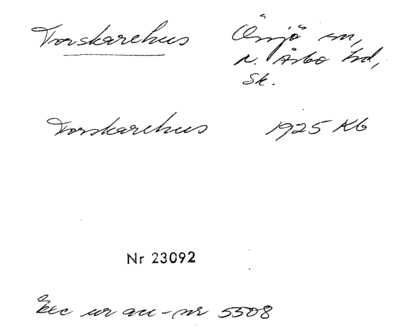 Torskarehus Össjö sn,
N. Åsbo hd,
Sk.
Torskarehus 1925 KG
Nr 23092
Exc ur acc-nr 5508